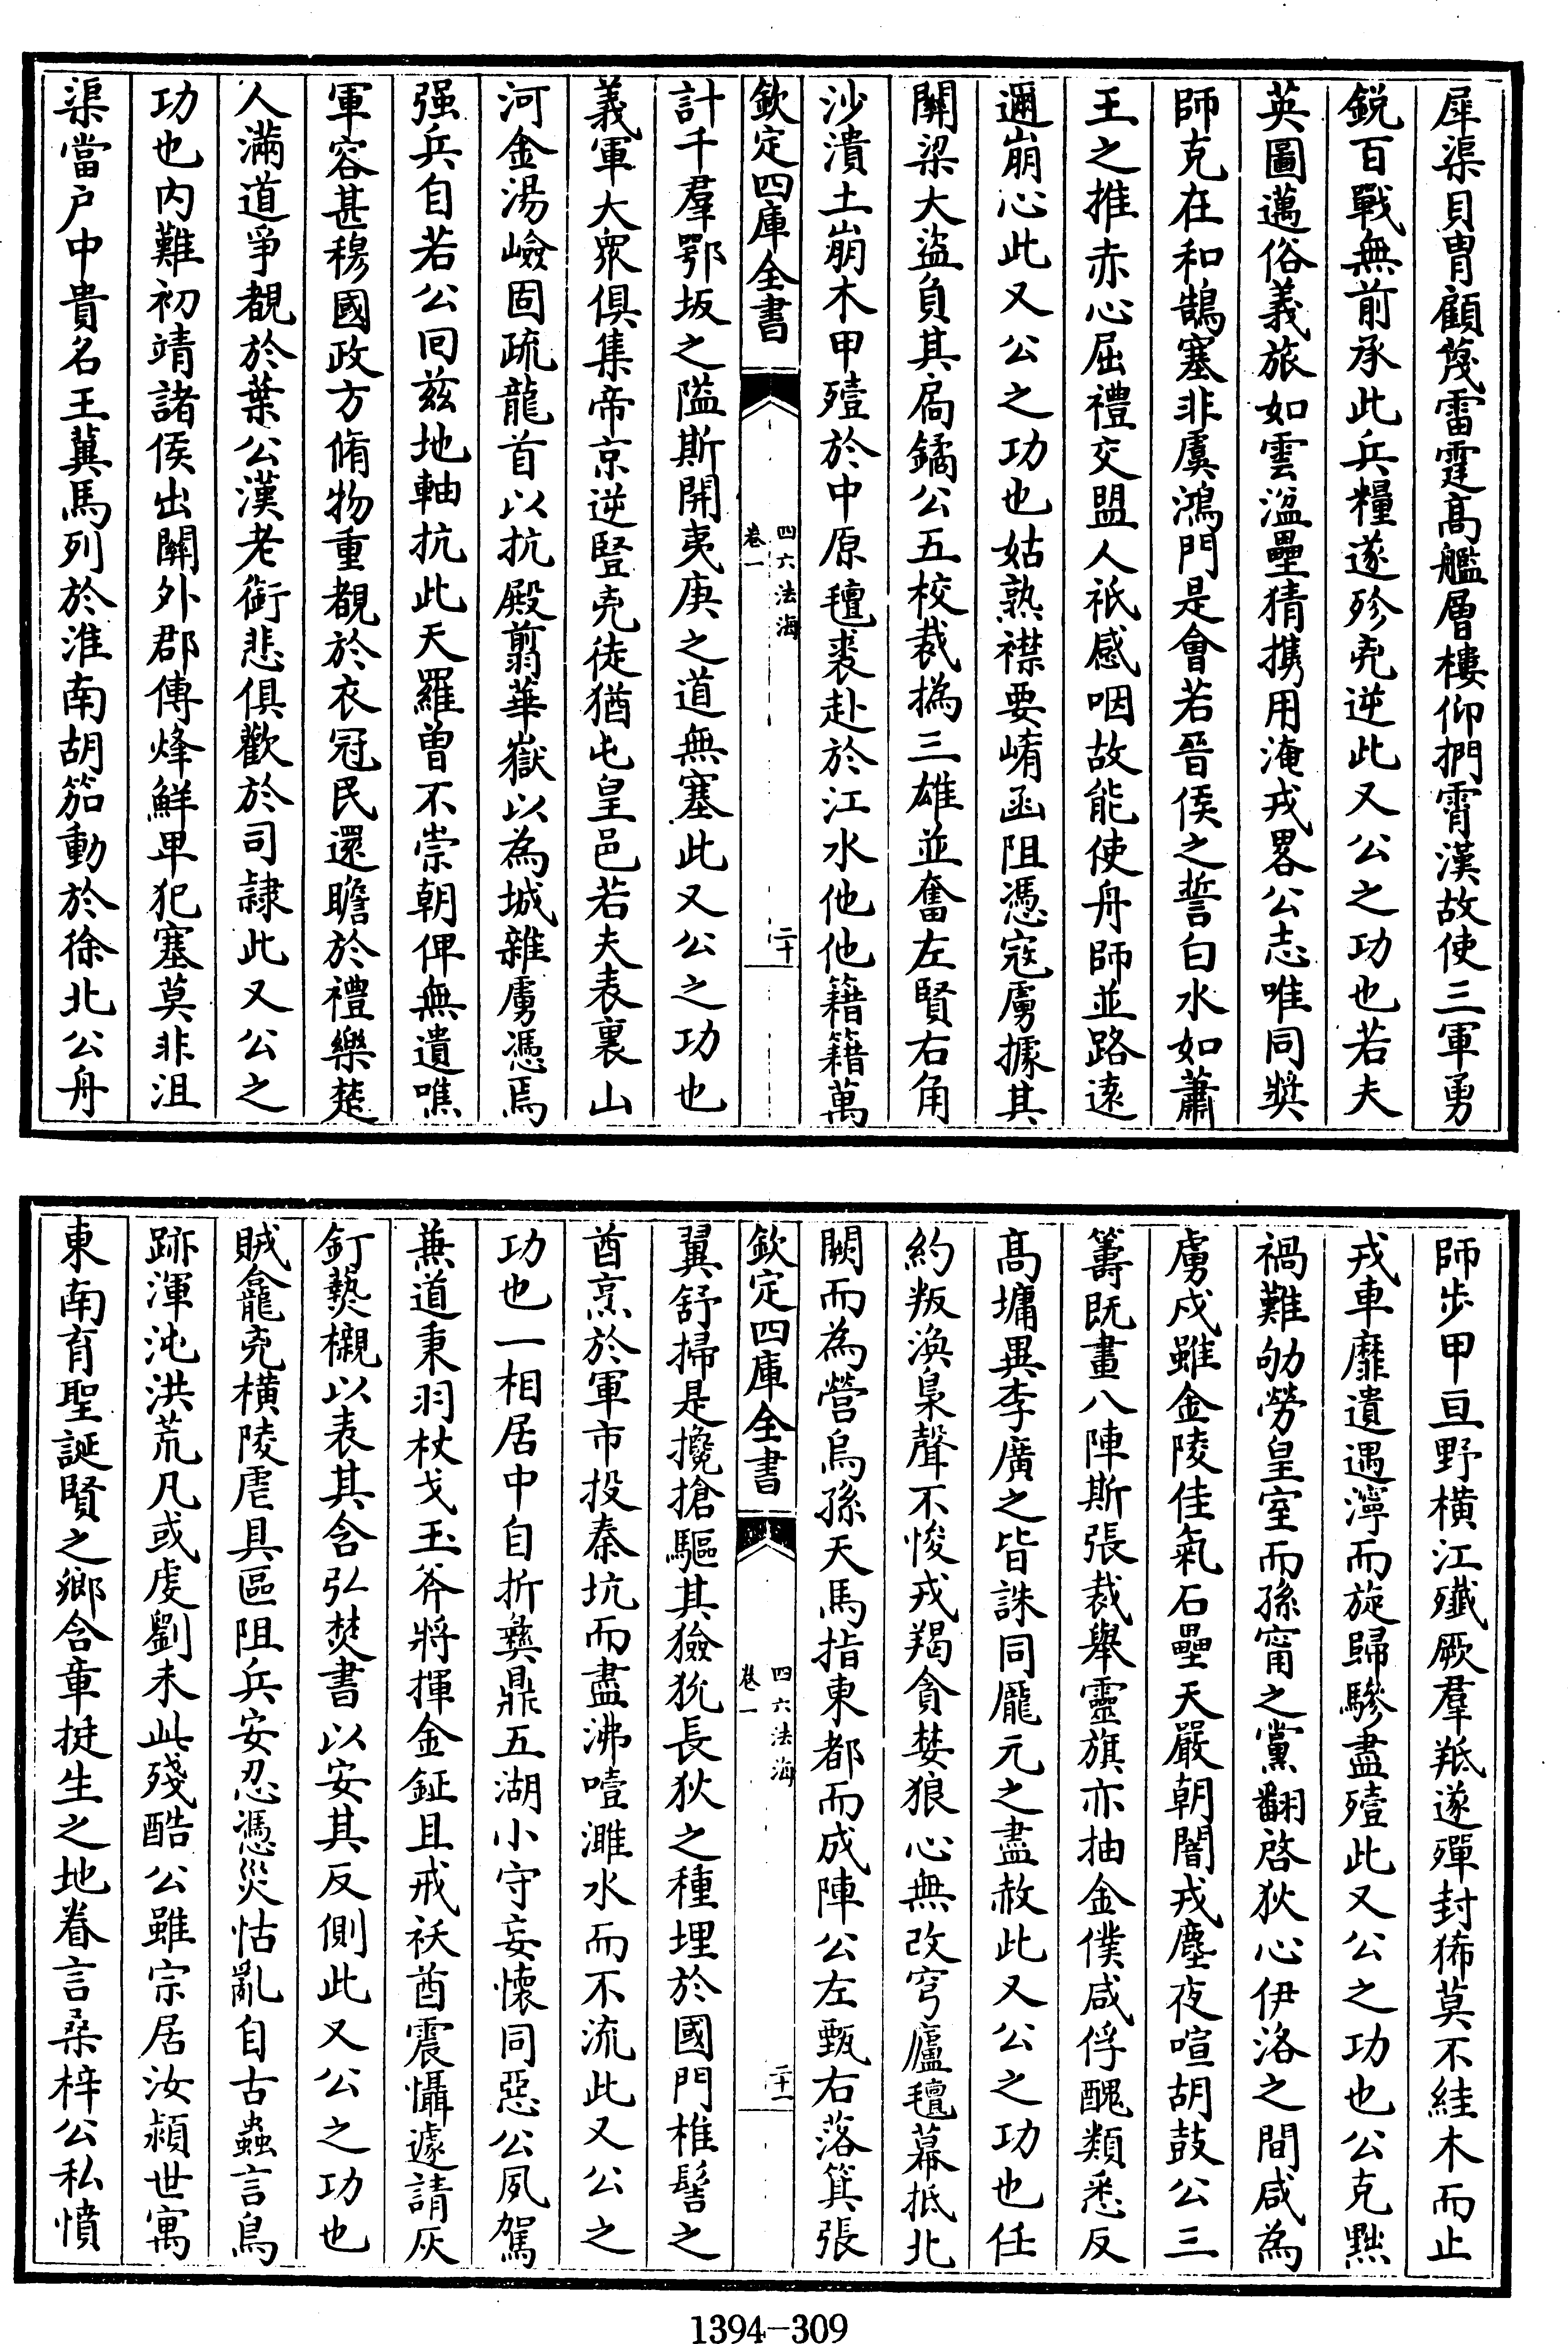 犀渠貝胄顧篾雷霆髙艦層樓仰捫霄漢故使三軍勇
鋭百戰無前承此兵糧遂殄兇逆此又公之功也若夫
英圖邁俗義旅如雲溢壘猜携用淹戎畧公志唯同奬
師克在和鵠塞非虞鴻門是會若晉侯之誓白水如蕭
王之推赤心屈禮交盟人祇感咽故能使舟師並路逺
邇崩心此又公之功也姑熟襟要崤函阻憑寇虜據其
關梁大盜負其扃鐍公五校裁撝三雄並奮左賢右角
沙潰土崩木甲殪於中原氊裘赴於江水他他籍籍萬
欽定四庫全書
四六法海
卷一
二十
計千羣鄂坂之隘斯開夷庚之道無塞此又公之功也
義軍大衆俱集帝京逆豎兇徒猶屯皇邑若夫表裏山
河金湯嶮固疏龍首以抗殿翦華嶽以為城雜虜憑焉
强兵自若公回兹地軸抗此天羅曽不崇朝俾無遺噍
軍容甚穆國政方脩物重覩於衣冠民還瞻於禮樂楚
人滿道爭覩於葉公漢老銜悲俱歡於司隷此又公之
功也内難初靖諸侯出關外郡傳烽鮮卑犯塞莫非沮
渠當户中貴名王冀馬列於淮南胡笳動於徐北公舟
師步甲亘野橫江殲厥羣羝遂殫封狶莫不絓木而止
戎車靡遺遇濘而旋歸驂盡殪此又公之功也公克黜
禍難劬勞皇室而孫甯之黨翻啓狄心伊洛之間咸為
虜戍雖金陵佳氣石壘天嚴朝闇戎塵夜喧胡鼓公三
籌既畫八陣斯張裁舉靈旗亦抽金僕咸俘醜類悉反
髙墉異李廣之皆誅同龎元之盡赦此又公之功也任
約叛渙梟聲不悛戎羯貪婪狼心無改穹廬氊幕抵北
闕而為營烏孫天馬指東都而成陣公左甄右落箕張
欽定四庫全書
四六法海
卷一
二十一
翼舒掃是攙搶驅其獫狁長狄之種埋於國門椎髻之
酋烹於軍市投秦坑而盡沸噎濉水而不流此又公之
功也一相居中自折彝鼎五湖小守妄懐同惡公夙駕
兼道秉羽杖戈玉斧將揮金鉦且戒祅酋震慴遽請灰
釘爇櫬以表其含弘焚書以安其反側此又公之功也
賊龕兇橫陵虐具區阻兵安忍憑災怙亂自古蟲言鳥
跡渾沌洪荒凡或虔劉未此殘酷公雖宗居汝潁世寓
東南育聖誕賢之鄉含章挺生之地眷言桑梓公私憤
1394-309